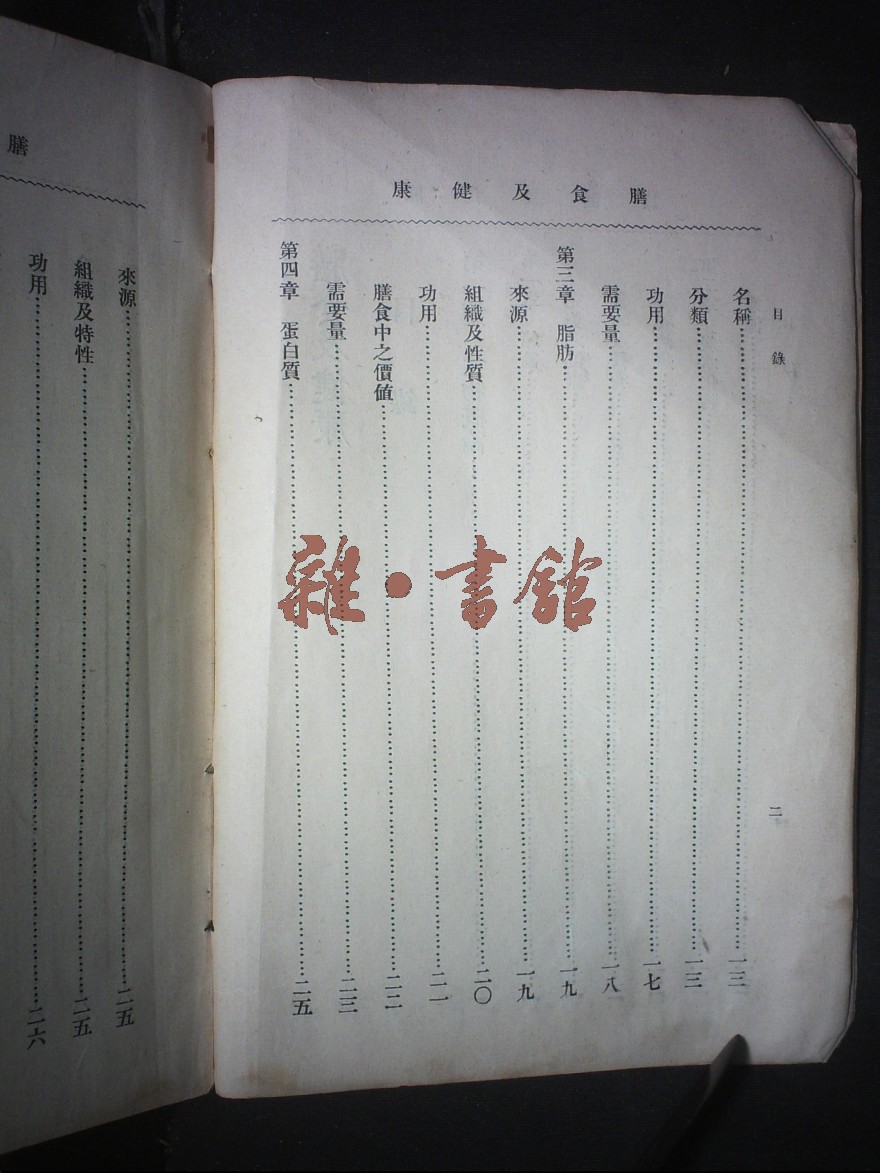 膳食及健康
目錄
二
名稱……一三
分類……一三
功用……一七
需要量……一八
第三章 脂肪……一九
來源……一九
組織及性質……二〇
功用……二一
膳食中之價値……二二
需要量……二三
第四章 蛋白質……二五
膳
來源……二五
組織及特性……二五
功用……二六
雜·書館